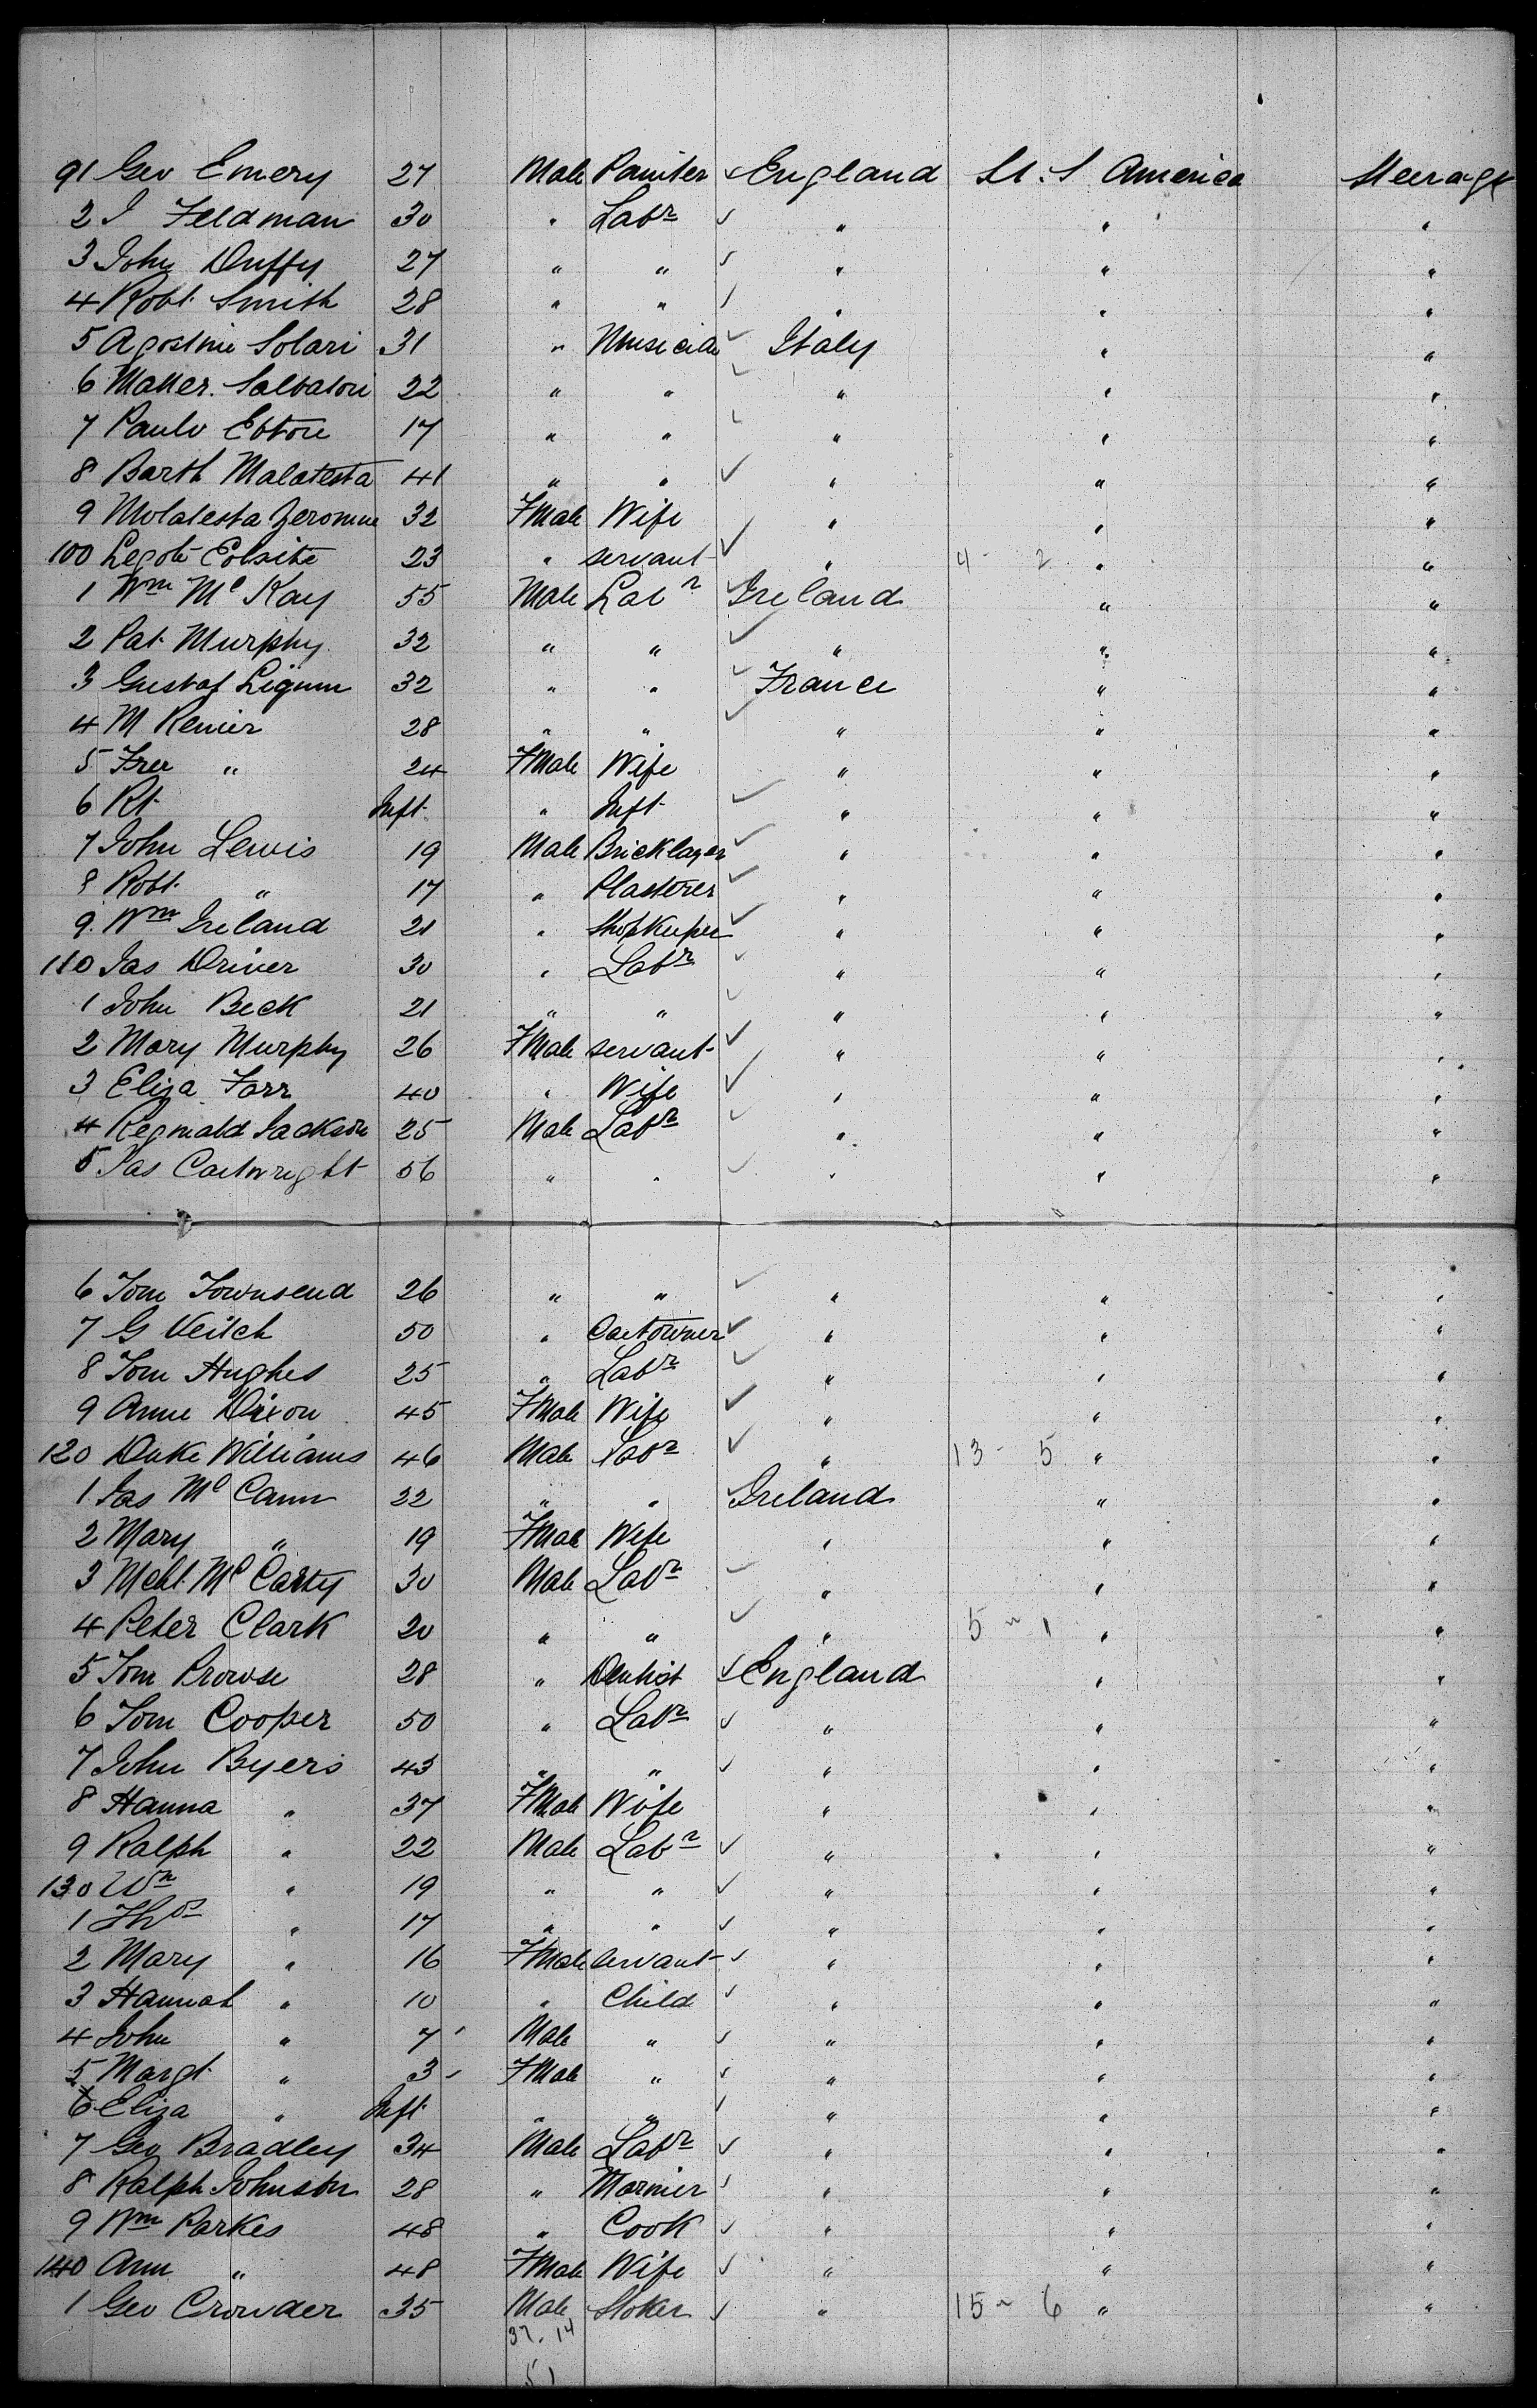 91 Geo Emery 27 Male Painter ✓ England U.S America Steerage
2 I Feldman 30 " Labr ✓ " " "
3 John Duffy 27 " " ✓ " " "
4 Robt. Smith 28 " " ✓ " " "
5 Agostini Solari 31 " Musician ✓ Italy " "
6 Salvatori 22 " " ✓ " " "
7 Paulo 17 " " ✓ " " "
8 Barth Malatesta 41 " " ✓ " " "
9 Molatesta 32 FMale Wife " " "
100 23 " servant ✓ " 4 - 2 " "
1 Wm Mc Kay 55 Male Labr ✓ Ireland " "
2 Pat. Murphy 32 " " ✓ " " "
3 Gustaf 32 " " ✓ France " "
4 M Renier 28 " " ✓ " " "
5 " 24 FMale Wife " " "
6 Rt. Inft. " Inft. ✓ " " "
7 John Lewis 19 Male Bricklayer ✓ " " "
8 Robt. " 17 " Plasterer ✓ " " "
9. Wm Ireland 21 " Shopkeeper ✓ " " "
110 Jas Driver 30 " Labr ✓ " " "
1 John Beck 21 " " ✓ " " "
2 Mary Murphy 26 FMale servant ✓ " " "
3 Eliza Farr 40 " Wife ✓ " " "
4 Reginald Jackson 25 Male Labr ✓ " " "
5 Jas Cartwright 56 " " ✓ " " "
6 Tom Townsend 26 " " ✓ " " "
7 G Veitch 50 " Cartowner ✓ " " "
8 Tom Hughes 25 " Labr ✓ " " "
9 Anne Dixon 45 FMale Wife ✓ " " "
120 Duke Williams 46 Male Labr ✓ " 13 - 5 " "
1 Jas Mc Cann 22 " " ✓ Ireland " "
2 Mary " 19 FMale Wife " " "
3 Mchl. Mc Carty 30 Male Labr ✓ " " "
4 Peter Clark 20 " " ✓ " 5 ~ 1 " "
5 Tom Prowse 28 " Dentist ✓ England " "
6 Tom Cooper 50 " Labr ✓ " " "
7 John Byers 43 " " ✓ " " "
8 Hanna " 37 FMale Wife " " "
9 Ralph " 22 Male Labr ✓ " " "
130 Wm " 19 " " ✓ " " "
1 Thos " 17 " " ✓ " " "
2 Mary " 16 FMale servant ✓ " " "
3 Hannah " 10 " Child ✓ " " "
4 John " 7 Male " ✓ " " "
5 Margt. " 3 FMale " ✓ " " "
6 Eliza " Inft. " " ✓ " " "
7 Geo Bradley 34 Male Labr ✓ " " "
8 Ralph Johnston 28 " Marnier ✓ " " "
9 Wm Parkes 48 " Cook ✓ " " "
140 Ann " 48 FMale Wife ✓ " " "
1 Geo Crowder 35 Male Stoker ✓ " 15 ~ 6 " "
37. 14
51